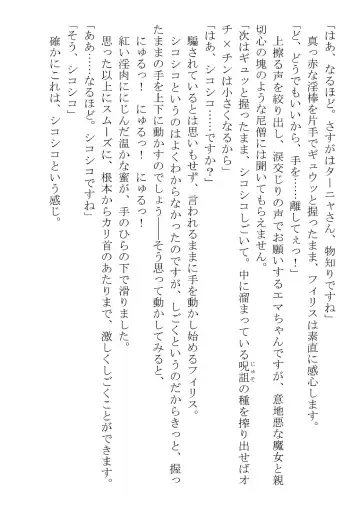 「はぁ、なるほど。さすがはターニャさん、物知りですね」
　真っ赤な淫棒を片手でギュウッと握ったまま、フィリスは素直に感心します。
「ど、どうでもいいから、手を……離してぇっ！」
　上擦る声を絞り出し、涙交じりの声でお願いするエマちゃんですが、意地悪な魔女と親
切心の塊のような尼僧には聞いてもらえません。
「次はギュッと握ったまま、シコシコしごいて。中に溜まっている呪詛の種を搾り出せばオ
チ×チンは小さくなるから」
「はあ、シコシコ……ですか？」
　騙されているとは思いもせず、言われるままに手を動かし始めるフィリス。
　シコシコというのはよくわからなかったのですが、しごくというのだからきっと、握っ
たままの手を上下に動かすのでしょう――そう思って動かしてみると、
　にゅるっ！　にゅるっ！　にゅるっ！
　紅い淫肉ににじんだ温かな蜜が、手のひらの下で滑りました。
　思った以上にスムーズに、根本からカリ首のあたりまで、激しくしごくことができます。
「ああ……なるほど。シコシコですね」
「そう、シコシコ」
　確かにこれは、シコシコという感じ。